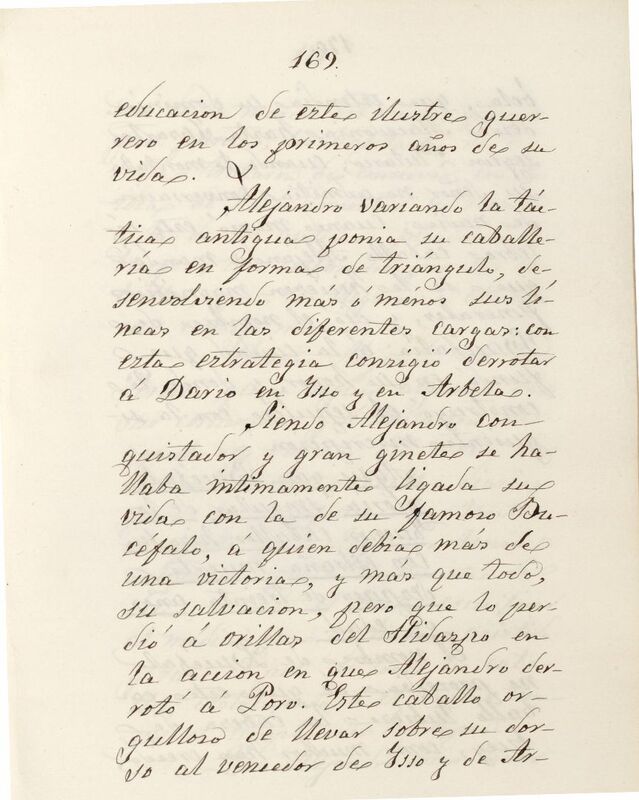 169.
educacion de este ilustre guer-
rero en los primeros años de su
vida.
Alejandro variando la tác-
tica antigua ponia su caballe-
ría en forma de triángulo, de-
senvolviendo más ó ménos sus lí-
neas en las diferentes cargas: con
esta estrategia consigió derrotar
á Dario en Isso y en Arbela.
Siendo Alejandro con
quistador y gran ginete se ha-
llaba íntimamente ligada su
vida con la de su famoso Bu-
céfalo, á quien debia más de
una victoria, y más que todo,
su salvacion, pero que lo per-
dió á orillas del Hidazpo en
la accion en que Alejandro der-
rotó á Poro. Este caballo or-
gulloso de llevar sobre su dor-
so al vencedor de Isso y de Ar-